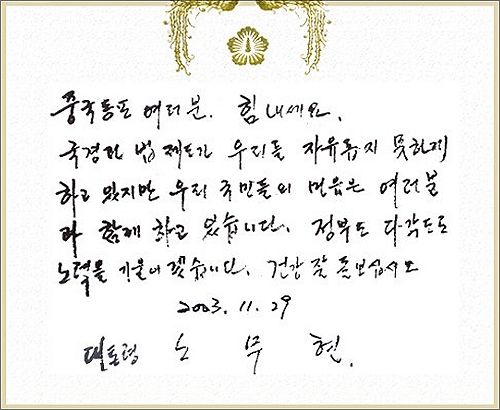 중국동포 여러분. 힘내세요.
국경과 법 제도가 우리를 자유롭지 못하게
하고 있지만 우리 국민들의 마음은 여러분
과 함께 하고 있습니다. 정부도 다각도로
노력을 기울이겠습니다. 건강 잘 돌보십시오
2003. 11. 29
대통령 노 무 현.